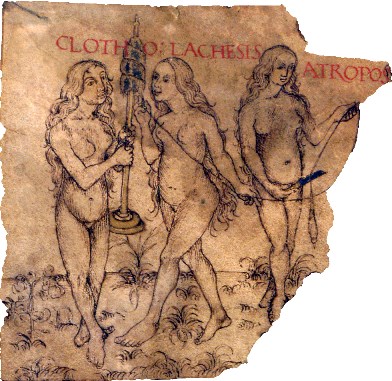 CLOTHO: LACHESIS
ATROPOS